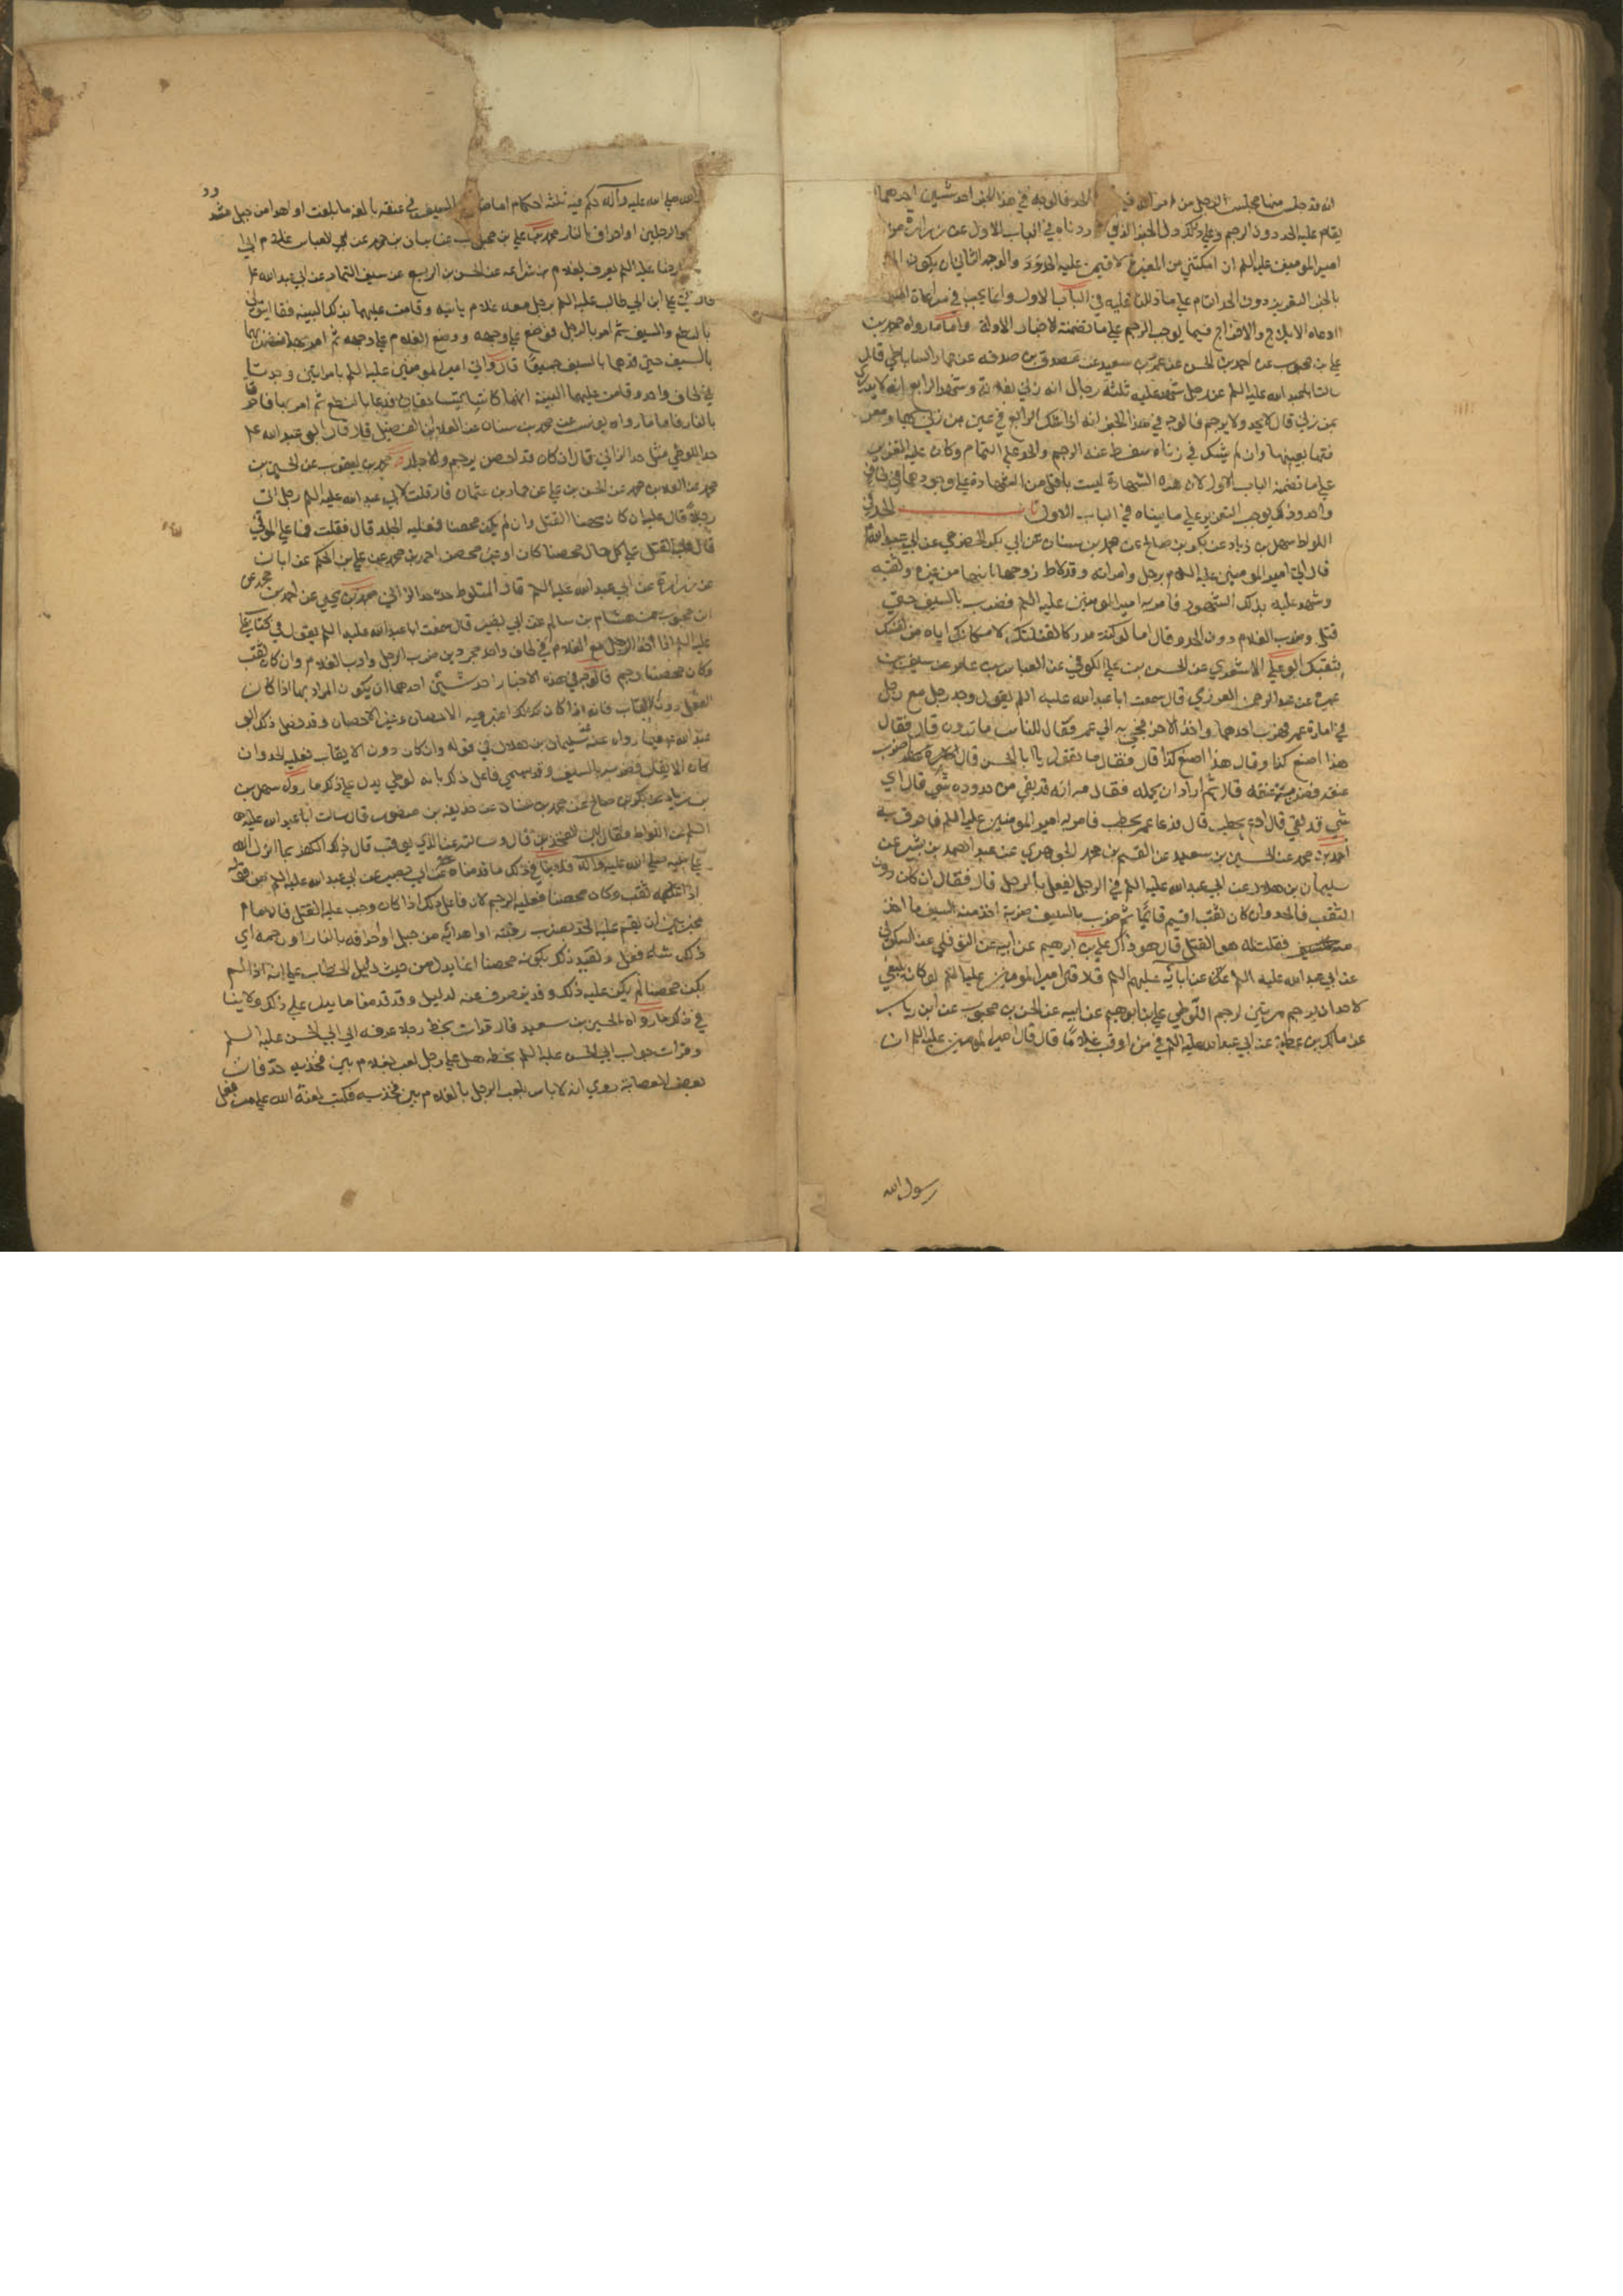 انه قد جلس منها مجلس الرجل من امراته الحد فالوجه في هذا الخبر احد شيئين احدهما ان
يقام عليه الحد دون الرجم وعلي ذلك دل الخبر الذي اوردناه في الباب الاول عن زرارة
امير المومنين عليه السلم ان امكنتني من المغيرة لاقيمن عليه الحدود والوجه الثاني ان يكون
بالخبر التعزير دون الحد التام علي ما دللنا عليه في الباب الاول وانما يجب في مراعاة
الايلاج والاخراج فيما يوجب الرجم علي ما تضمنته الاخبار الاولة واما ما رواه محمد بن
علي بن محبوب عن احمد بن الحسن عن عمرو بن سعيد عن مصدق بن صدقه عن عمار الساباطي قال
سالت ابا عبد الله عليه السلم عن رجل شهد عليه ثلثة رجال انه زني بفلانة وشهد الرابع انه لا يدري
بمن زني قال لا يحد ولا يرجم فالوجه في هذا الخبر انه اذا شك الرابع في عين من زني بها
بعينها وان لم يشك في زناه سقط عنه الرجم والحد علي التمام وكان عليه التعزير
علي ما تضمنه الباب الاول لان هذه الشهادة ليست باقل من الشهادة علي وجودهما في لحاف
واحد وذلك يوجب التعزير علي ما بيناه في الباب الاول الحد في
اللواط سهل بن زياد عن بكر بن صالح عن محمد بن سنان عن ابي بكر الحضرمي عن ابي عبد الله
قال اتي امير المومنين عليه السلام برجل وامراته وقد لاط زوجها بابنها من غيره وثقبه
وشهد عليه بذلك الشهود فامر به امير المومنين عليه السلم فضرب بالسيف حتي
قتل وضرب الغلام دون الحد وقال اما لو كنت مدركا لقتلتك لامكانك اياه من نفسك
بثقبك ابو علي الاشعري عن الحسن بن علي الكوفي عن العباس بن عامر عن سيف بن
عميرة عن عبد الرحمن العرزمي قال سمعت ابا عبد الله عليه السلم يقول وجد رجل مع رجل
في امارة عمر فهرب احدهما واخذ الاخر فجيء به الي عمر فقال للناس ما ترون قال فقال
هذا اصنع كذا وقال هذا اصنع كذا قال فقال ما تقول يا ابا الحسن قال اضرب
عنقه فضرب عنقه قال ثم اراد ان يحمله فقال مه انه قد بقي من حدوده شي قال اي
شي قد بقي قال ادع بحطب قال فدعا عمر بحطب فامر به امير المومنين عليه السلم فاحرق به
احمد بن محمد عن الحسين بن سعيد عن القسم بن محمد الجوهري عن عبد الصمد بن بشير عن
سليمان بن هلال عن ابي عبد الله عليه السلم في الرجل يفعل بالرجل قال فقال ان كان دون
الثقب فالحد وان كان ثقب اقيم قائما ثم ضرب بالسيف ضربة اخذ منه السيف ما اخذ
فقلت له هو القتل قال هو ذاك علي بن ابرهيم عن ابيه عن النوفلي عن السكوني
عن ابي عبد الله عليه السلم عن ابائه عليهم السلم قال قال امير المومنين عليه السلم لو كان ينبغي
لاحد ان يرجم مرتين لرجم اللوطي علي بن ابرهيم عن ابيه عن الحسن بن محبوب عن ابن رياب
عن مالك بن عطية عن ابي عبد الله عليه السلم في من اوقب غلاما قال قال امير المومنين عليه السلم ان
رسول الله
الله صلي الله عليه وآله حكم فيه ثلثة احكام اما ضربة بالسيف في عنقه بالغه ما بلغت او اهدا من جبل مشدود
اليدين والرجلين او احراق بالنار محمد بن علي بن محبوب عن بنان بن محمد عن العباس غلام لابي
الحسن الرضا عليه السلم يعرف بغلام بن شراعه عن الحسن بن الربيع عن سيف التمار عن ابي عبد الله عليه
قال اتي علي ابن ابي طالب عليه السلم برجل معه غلام ياتيه وقامت عليهما بذلك البينه فقال ائتوني
بالنطع والسيف ثم امر بالرجل فوضع علي وجهه ووضع الغلام علي وجهه ثم امر بهما فضربهما
بالسيف حتي قدهما بالسيف جميعا قال واتي امير المومنين عليه السلم بامراتين وجدتا
في لحاف واحد وقامت عليهما البينة انهما كانتا يتساحقان فدعا بالنطع ثم امر بهما فاحرقا
بالنار فاما ما رواه يونس عن محمد بن سنان عن العلا بن الفضيل قال قال ابو عبد الله عليه
حد اللوطي مثل حد الزاني قال ان كان قد احصن يرجم والا جلد محمد بن يعقوب عن الحسين بن
محمد عن المعلا بن محمد عن الحسن بن علي عن حماد بن عثمان قال قلت لابي عبد الله عليه السلم رجل اتي
رجلا قال عليه ان كان محصنا القتل وان لم يكن محصنا فعليه الجلد قال فقلت فما علي الموتي
قال عليه القتل علي كل حال محصنا كان او غير محصن احمد بن محمد عن علي بن الحكم عن ابان
عن زرارة عن ابي عبد الله عليه السلم قال المتلوط حده حد الزاني محمد بن يحيي عن احمد بن محمد عن
ابن محبوب عن هشام بن سالم عن ابي بصير قال سمعت ابا عبد الله عليه السلم يقول في كتاب علي
عليه السلم اذا اخذ الرجل مع الغلام في لحاف واحد مجردين ضرب الرجل وادب الغلام وان كان ثقب
وكان محصنا رجم فالوجه في هذه الاخبار احد شيئين احدهما ان يكون المراد بها اذا كان
الفعل دون الايقاب فانه اذا كان كذلك اعتبر فيه الاحصان وغير الاحصان وقد فصل ذلك ابو
عبد الله عليه السلم فيما رواه عنه سليمان بن هلال في قوله وان كان دون الايقاب فعليه الحد وان
كان الايقاب فضربة بالسيف وقد سمي فاعل ذلك بانه لوطي يدل علي ذلك ما رواه سهل بن
بن زياد عن بكر بن صالح عن محمد بن سنان عن حذيفه بن منصور قال سالت ابا عبد الله عليه
السلم عن اللواط فقال بين الفخذين قال وسالته عن الذي يوقب قال ذلك الكفر بما انزل الله
علي نبيه صلي الله عليه وآله فلا ينافي ذلك ما قدمناه عن ابي بصير عن ابي عبد الله عليه السلم من قوله
اذا ثقب وكان محصنا فعليه الرجم لان فاعل ذلك اذا كان وجب عليه القتل فالامام
مخير بين ان يقيم عليه الحد بضرب رقبته او اهدائه من جبل او احراقه بالنار او رجمه اي
ذلك شاء فعل وتقييد ذلك بكونه محصنا انما يدل من حيث دليل الخطاب علي انه اذا لم
يكن محصنا لم يكن عليه ذلك وقد ينصرف عنه لدليل وقد قدمنا ما يدل علي ذلك ولا ينا
في ذلك ما رواه الحسين بن سعيد قال قرات بخط رجل اعرفه الي ابي الحسن عليه السلم
وقرات جواب ابي الحسن عليه السلم بخطه هل علي رجل لعب بغلام بين فخذيه حد فان
بعض العصابة روي انه لا باس بلعب الرجل بالغلام بين فخذيه فكتب لعنة الله علي من فعل